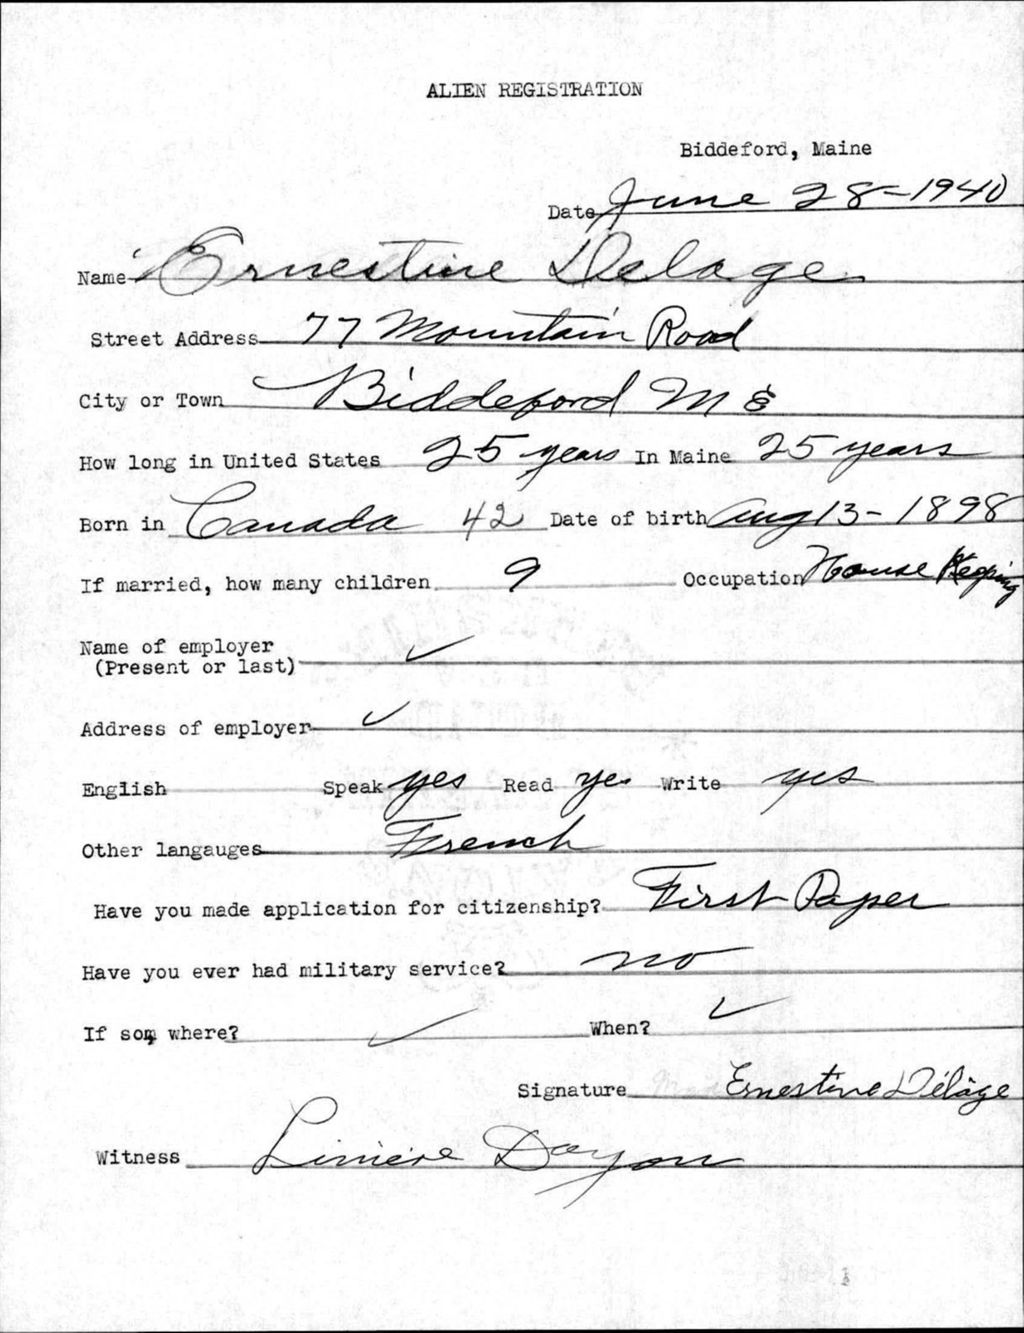 ALIEN REGISTRATION
Biddeford, Maine
Date June 28-1940
Name Ernestine Delage
Street Address 77 Mountain Road
City or Town Biddeford Me
How long in United States 25 years In Maine 25 years
Born in Canada 42 Date of birth Aug 13-1898
If married, how many children 9 Occupation House Keeping
Name of employer ✓
(Present or last)
Address of employer ✓
English Speak yes Read yes Write yes
Other langauges French
Have you made application for citizenship? First Paper
Have you ever had military service? no
If so, where? ✓ When? ✓
Signature Ernestine Délâge
Witness Linière Doyon